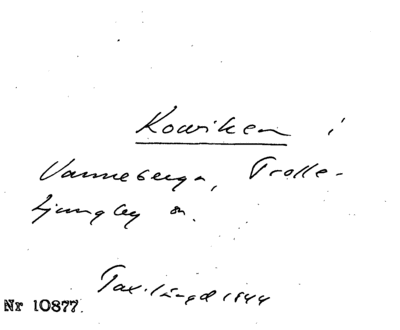 Kowiken i
Vanneberga, Trolle-
Ljungby sn.
Tax.längd 1944
Nr 10877.